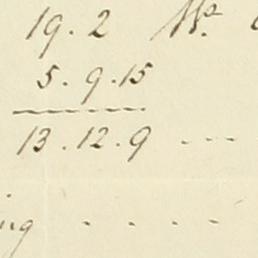 19.2 Mr.
5.9.15
13.12.9 ...
ing . . . . .